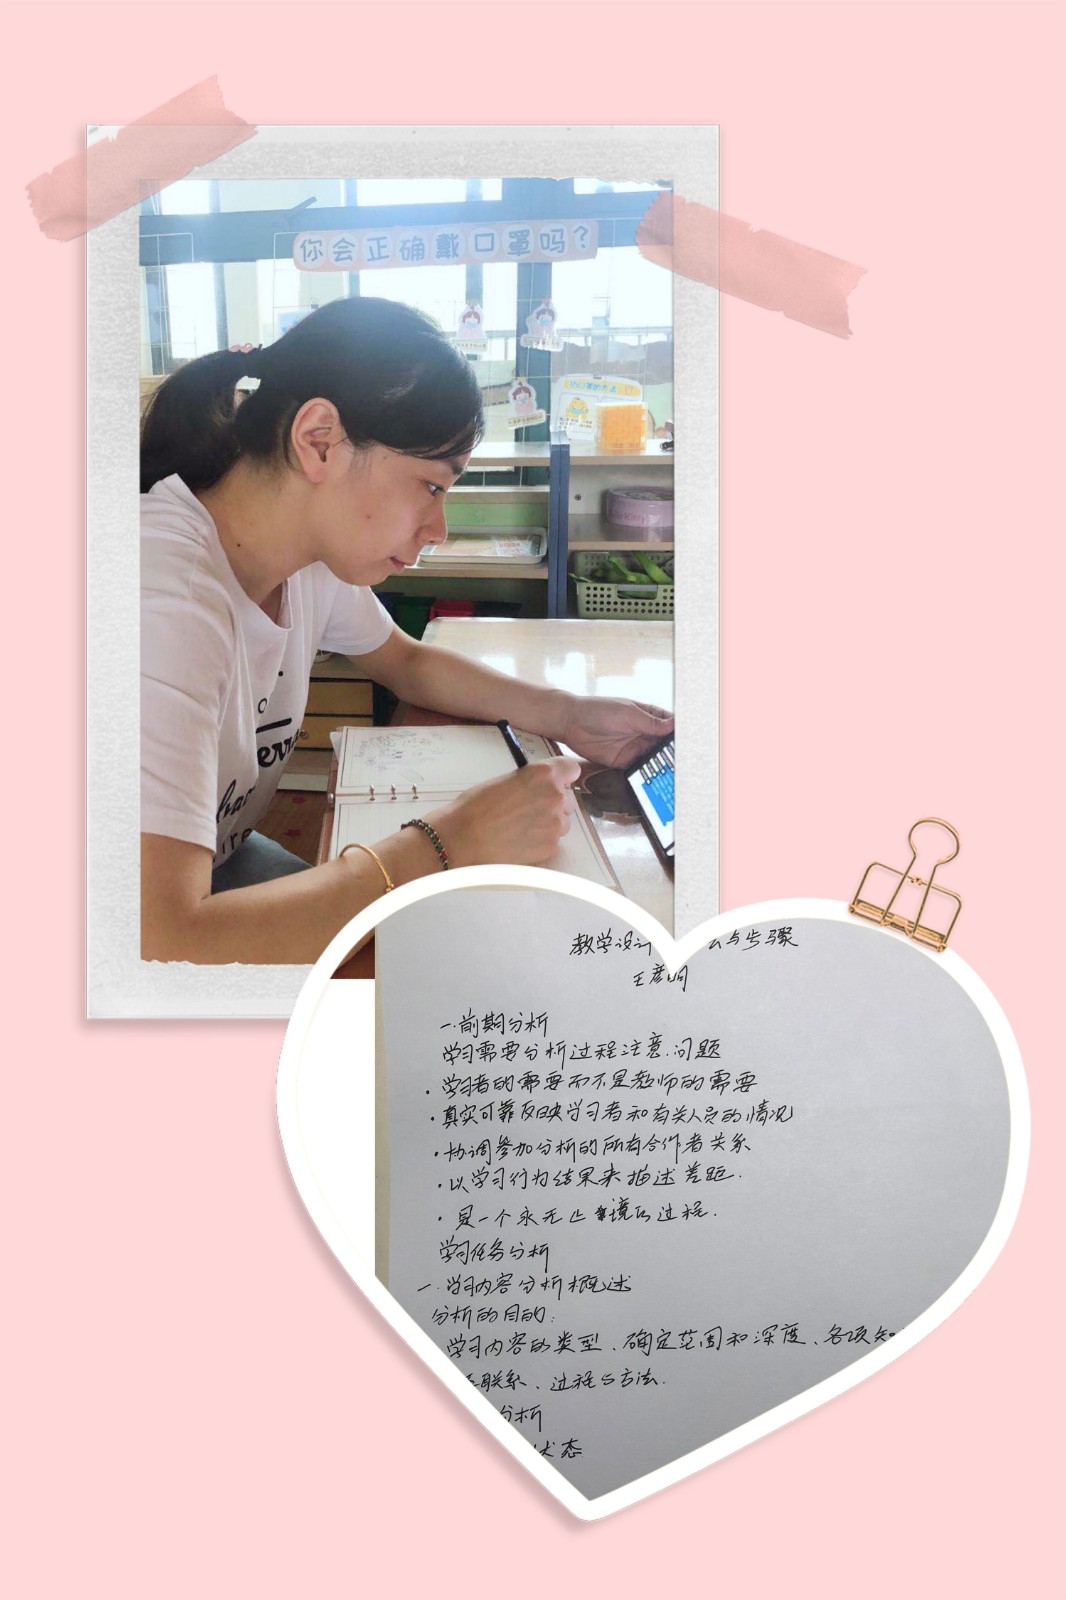 你会正确戴口罩吗？
教学设计 与步骤
王彦
一.前期分析
学习需要分析过程注意问题
·学习者的需要而不是教师的需要
·真实可靠反映学习者和有关人员的情况
·协调参加分析的所有合作者关系
·以学习行为结果来描述差距.
·是一个永无止境的过程.
学习任务分析
一.学习内容分析概述
分析的目的:
学习内容的类型、确定范围和深度、各项知
联系、过程与方法.
分析
状态